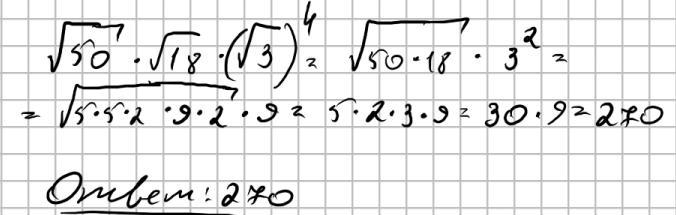 √50 · √18 · (√3)⁴ = √50·18 · 3² =
= √5·5·2·9·2 · 9 = 5·2·3·9 = 30·9 = 270
Ответ: 270